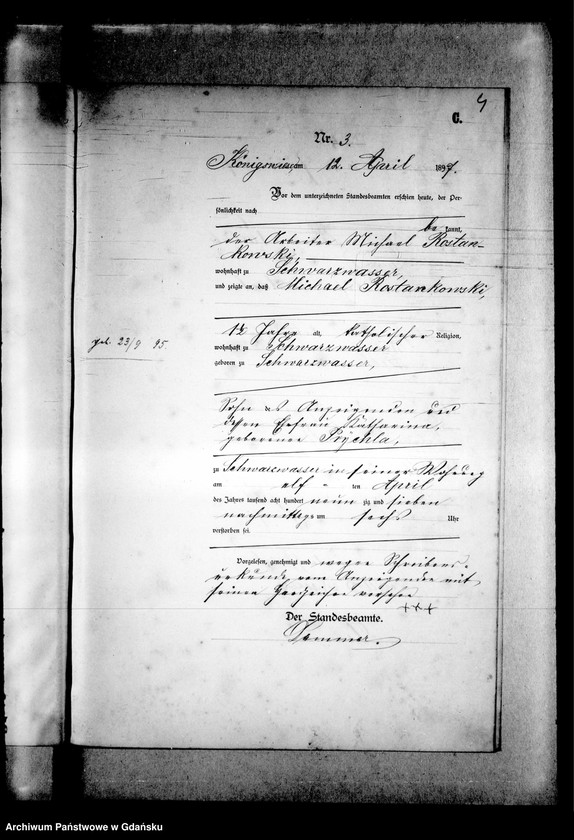 4
C.
Nr. 3.
am 12. April 1897.
Vor dem unterzeichneten Standesbeamten erschien heute, der Per-
sönlichkeit nach
be kannt,
der Arbeiter Michael Rostan-
kowski,
wohnhaft zu Schwarzwasser,
und zeigte an, daß Michael Rostankowski,
alt, katholischer Religion,
geb. 23/9 95.
wohnhaft zu Schwarzwasser
geboren zu Schwarzwasser,
Sohn des Anzeigenden und
dessen Ehefrau Katharina,
geborenen Prychla,
zu Schwarzwasser in seiner Wohnung
am elf ten April
des Jahres tausend acht hundert neun zig und sieben
nachmittags um sechs Uhr
verstorben sei.
Vorgelesen, genehmigt und wegen Schreibens-
unkunde vom Anzeigenden mit
seinem Handzeichen versehen
+++
Der Standesbeamte.
Archiwum Państwowe w Gdańsku